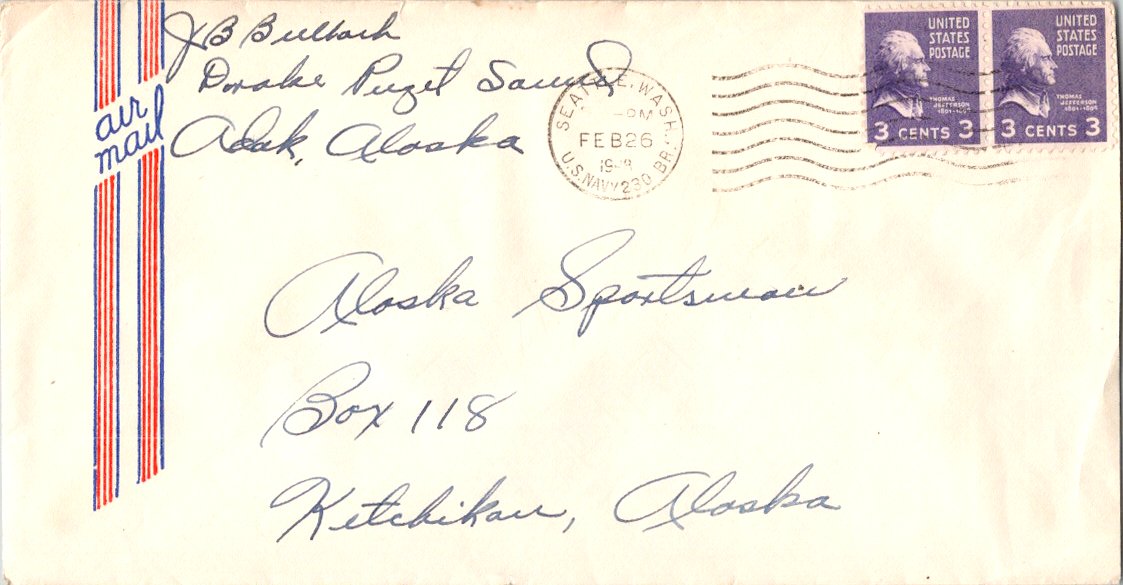 J B Bullock
Drake Puget Sound
Adak, Alaska
air
mail
SEATTLE, WASH.
PM
FEB 26
U.S. NAVY 230 BR.
UNITED
STATES
POSTAGE
THOMAS
JEFFERSON
1801-1809
3 CENTS 3
UNITED
STATES
POSTAGE
THOMAS
JEFFERSON
1801-1809
3 CENTS 3
Alaska Sportsman
Box 118
Ketchikan, Alaska